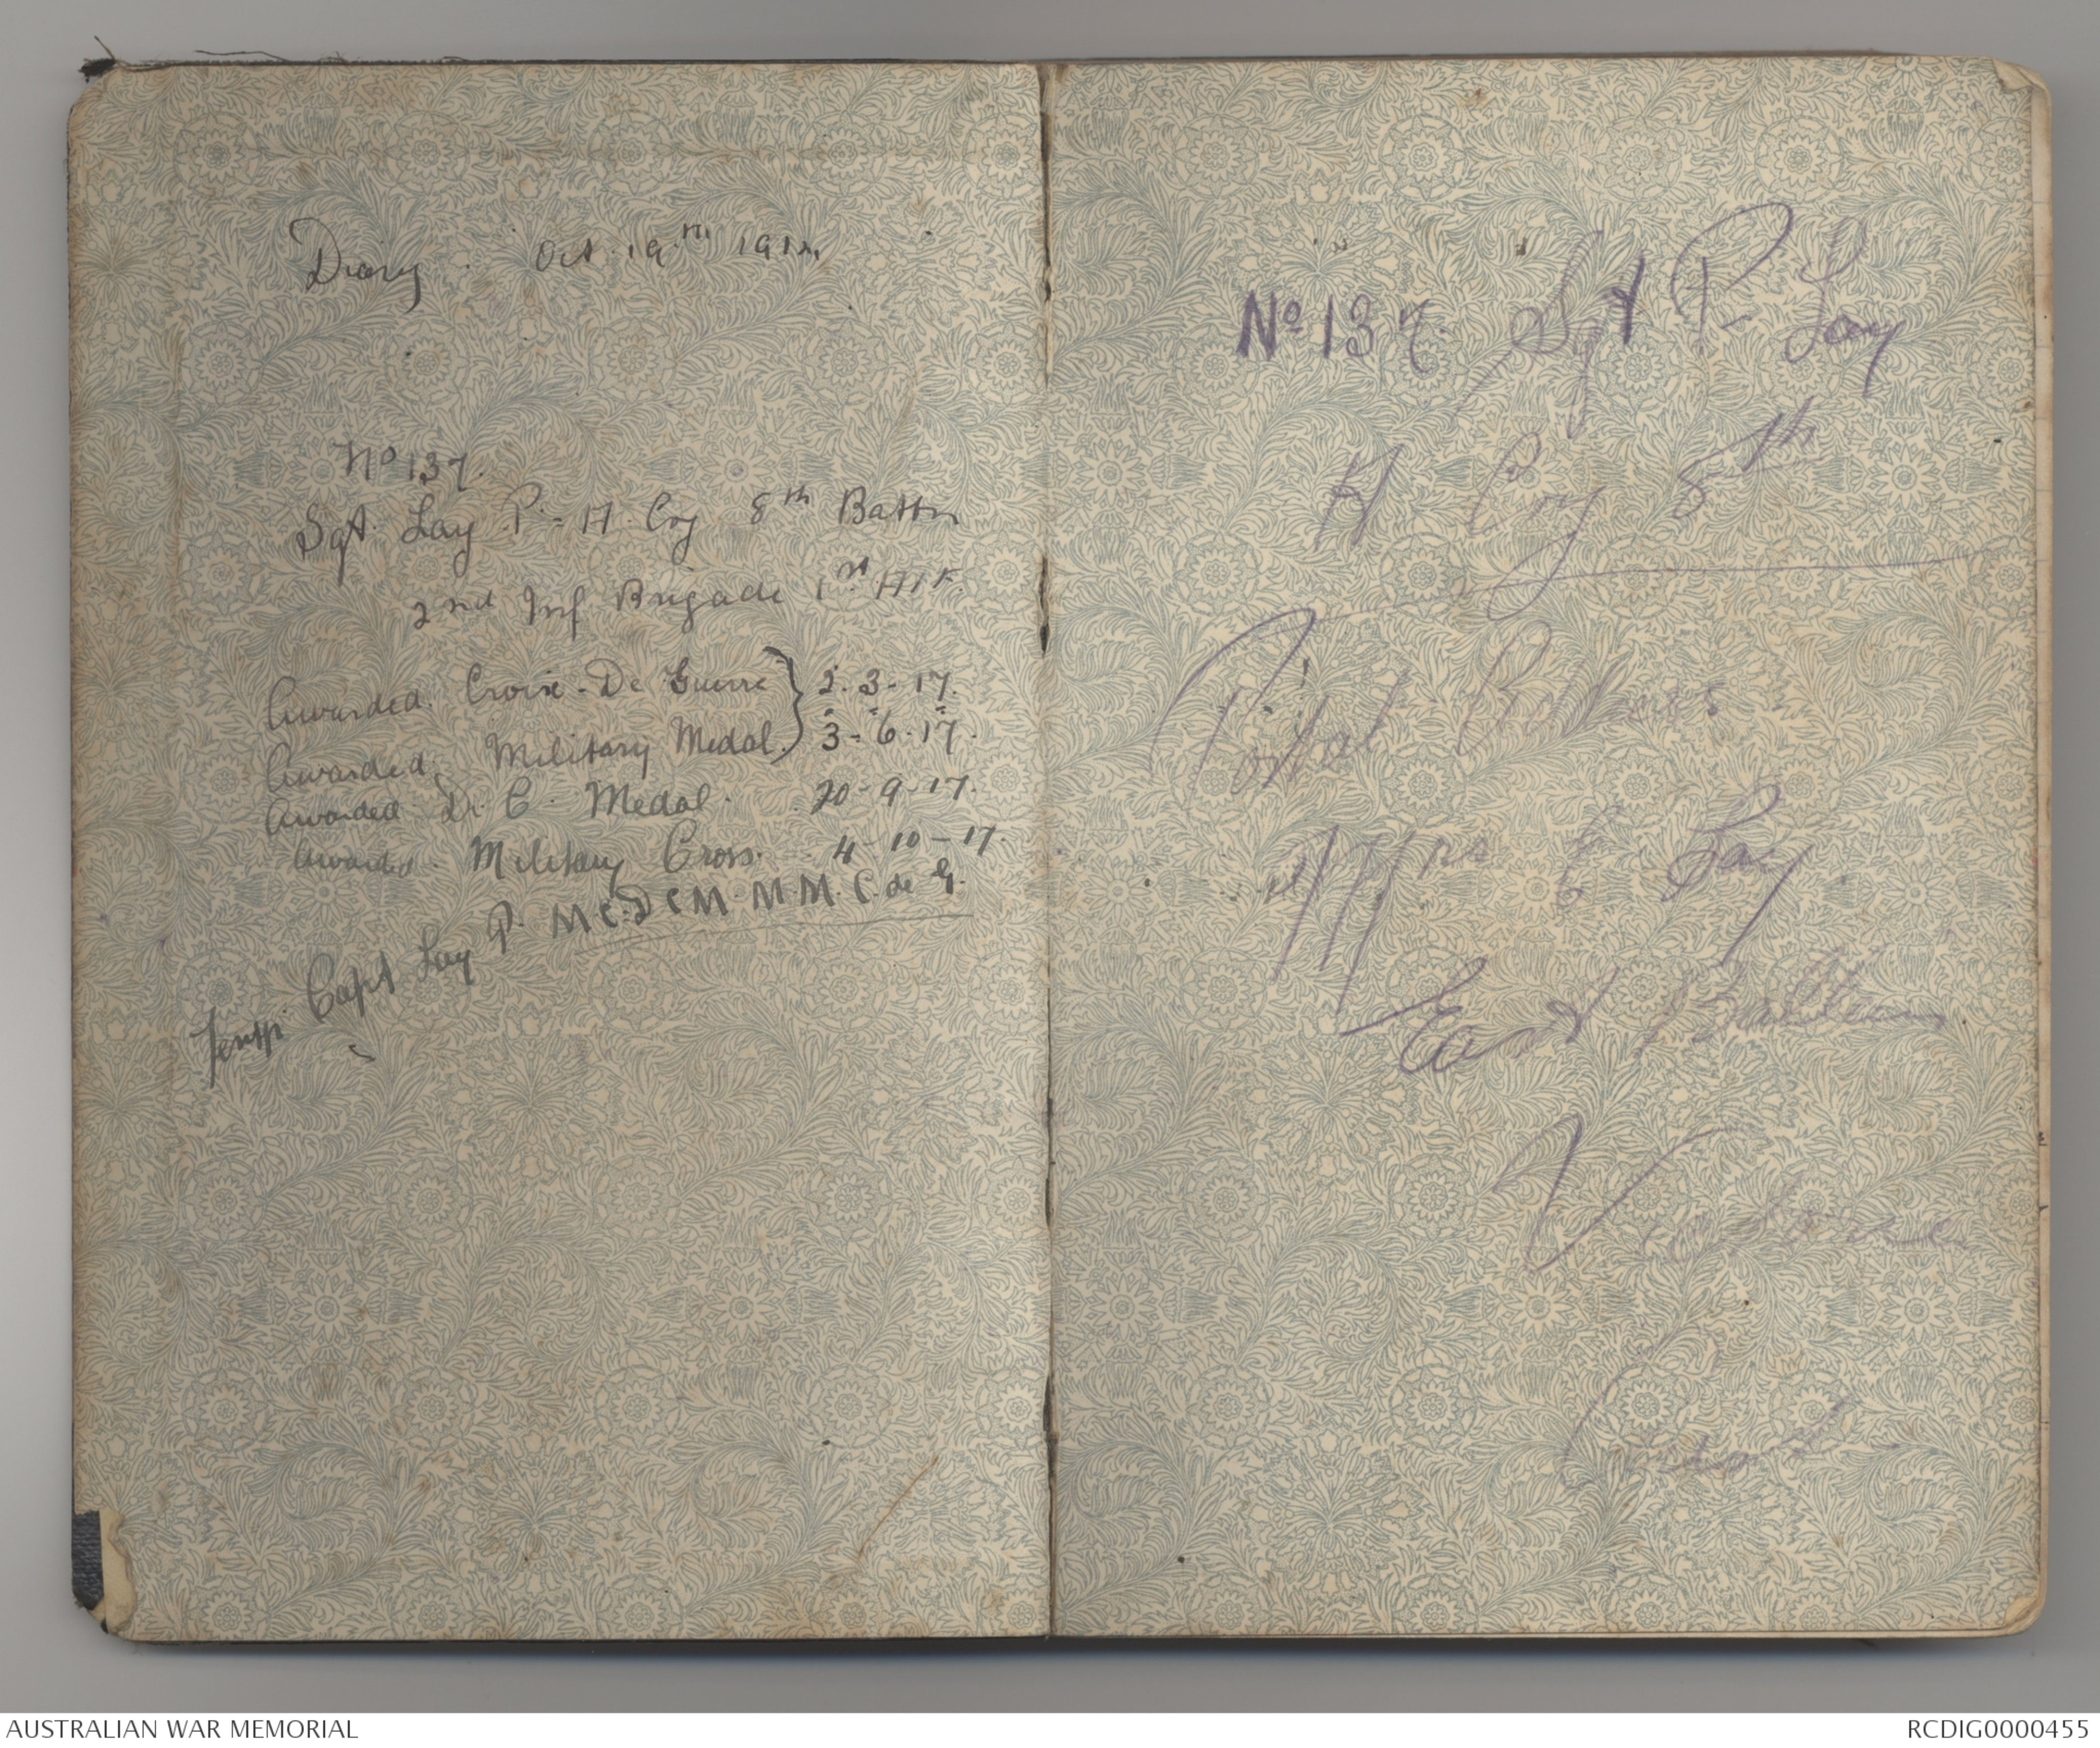 Diary. Oct. 19th 1914
No 137.
Sgt. Lay P. - H. Coy 8th Battn
2nd Inf Brigade 1st AIF.
Awarded. Croix-De Guerre } 2-3-17.
Awarded. Military Medal. } 3-6-17.
Awarded D. C. Medal. 20-9-17.
Awarded. Military Cross. 4-10-17.
Capt Lay P. MC. DCM. MM. C. de G.
No 137. Sgt P Lay
H Coy 8th
Postal Address
Mrs E Lay
East Ballan
Victoria
AUSTRALIAN WAR MEMORIAL
RCDIG0000455